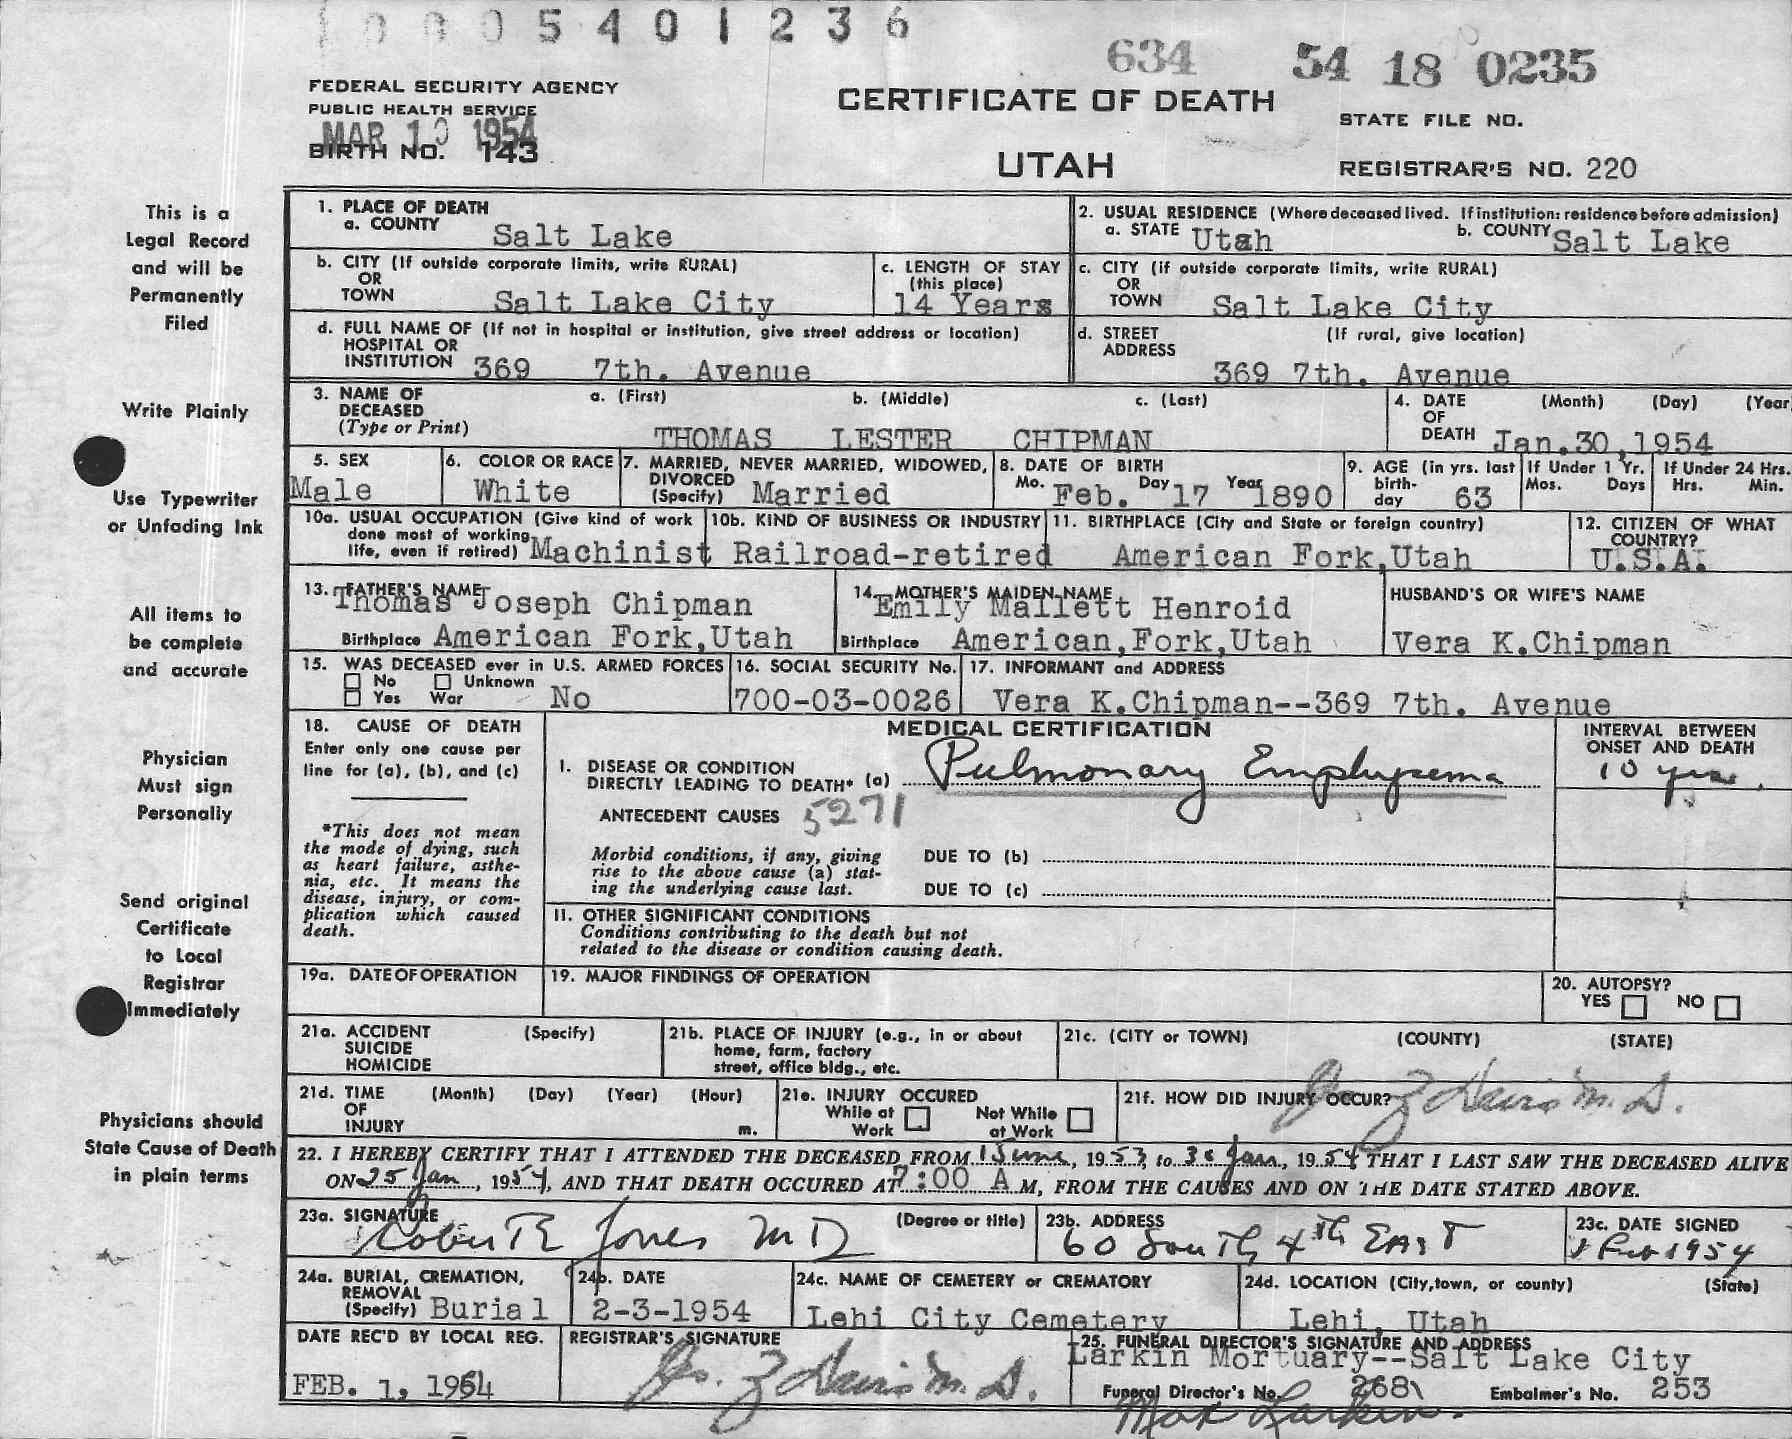 0005401236
634 54 18 0235
FEDERAL SECURITY AGENCY
PUBLIC HEALTH SERVICE
CERTIFICATE OF DEATH
STATE FILE NO.
MAR 10 1954
BIRTH NO. 143
UTAH
REGISTRAR'S NO. 220
This is a
Legal Record
and will be
Permanently
Filed
Write Plainly
Use Typewriter
or Unfading Ink
All items to
be complete
and accurate
Physician
Must sign
Personally
Send original
Certificate
to Local
Registrar
Immediately
Physicians should
State Cause of Death
in plain terms
1. PLACE OF DEATH
a. COUNTY Salt Lake
2. USUAL RESIDENCE (Where deceased lived. If institution: residence before admission)
a. STATE Utah b. COUNTY Salt Lake
b. CITY (If outside corporate limits, write RURAL)
OR
TOWN Salt Lake City
c. LENGTH OF STAY
(this place)
14 Years
c. CITY (if outside corporate limits, write RURAL)
OR
TOWN Salt Lake City
d. FULL NAME OF (If not in hospital or institution, give street address or location)
HOSPITAL OR
INSTITUTION 369 7th. Avenue
d. STREET (If rural, give location)
ADDRESS
369 7th. Avenue
3. NAME OF a. (First) b. (Middle) c. (Last)
DECEASED
(Type or Print)
THOMAS LESTER CHIPMAN
4. DATE (Month) (Day) (Year
OF
DEATH Jan.30,1954
5. SEX
Male
6. COLOR OR RACE
White
7. MARRIED, NEVER MARRIED, WIDOWED,
DIVORCED
(Specify) Married
8. DATE OF BIRTH
Mo. Feb. Day 17 Year 1890
9. AGE (in yrs. last
birth-
day 63
If Under 1 Yr.
Mos. Days
If Under 24 Hrs.
Hrs. Min.
10a. USUAL OCCUPATION (Give kind of work
done most of working
life, even if retired) Machinist
10b. KIND OF BUSINESS OR INDUSTRY
Railroad-retired
11. BIRTHPLACE (City and State or foreign country)
American Fork,Utah
12. CITIZEN OF WHAT
COUNTRY?
U.S.A.
13. FATHER'S NAME
Thomas Joseph Chipman
Birthplace American Fork,Utah
14. MOTHER'S MAIDEN NAME
Emily Mallett Henroid
Birthplace American,Fork,Utah
HUSBAND'S OR WIFE'S NAME
Vera K.Chipman
15. WAS DECEASED ever in U.S. ARMED FORCES
No Unknown
Yes War No
16. SOCIAL SECURITY No.
700-03-0026
17. INFORMANT and ADDRESS
Vera K.Chipman--369 7th. Avenue
18. CAUSE OF DEATH
Enter only one cause per
line for (a), (b), and (c)
*This does not mean
the mode of dying, such
as heart failure, asthe-
nia, etc. It means the
disease, injury, or com-
plication which caused
death.
MEDICAL CERTIFICATION
I. DISEASE OR CONDITION
DIRECTLY LEADING TO DEATH* (a) Pulmonary Emphysema
ANTECEDENT CAUSES 5271
Morbid conditions, if any, giving
rise to the above cause (a) stat-
ing the underlying cause last.
DUE TO (b)
DUE TO (c)
II. OTHER SIGNIFICANT CONDITIONS
Conditions contributing to the death but not
related to the disease or condition causing death.
INTERVAL BETWEEN
ONSET AND DEATH
10 yrs.
19a. DATE OF OPERATION
19. MAJOR FINDINGS OF OPERATION
20. AUTOPSY?
YES NO
21a. ACCIDENT (Specify)
SUICIDE
HOMICIDE
21b. PLACE OF INJURY (e.g., in or about
home, farm, factory
street, office bldg., etc.
21c. (CITY or TOWN) (COUNTY) (STATE)
21d. TIME (Month) (Day) (Year) (Hour)
OF
INJURY m.
21e. INJURY OCCURED
While at
Work
Not While
at Work
21f. HOW DID INJURY OCCUR?
M. D.
22. I HEREBY CERTIFY THAT I ATTENDED THE DECEASED FROM 1 June, 1953, to 30 Jan, 1954 THAT I LAST SAW THE DECEASED ALIVE
ON 25 Jan, 1954, AND THAT DEATH OCCURED AT 7:00 A M, FROM THE CAUSES AND ON THE DATE STATED ABOVE.
23a. SIGNATURE (Degree or title)
Jones MD
23b. ADDRESS
60 South 4th East
23c. DATE SIGNED
1 Feb 1954
24a. BURIAL, CREMATION,
REMOVAL
(Specify) Burial
24b. DATE
2-3-1954
24c. NAME OF CEMETERY or CREMATORY
Lehi City Cemetery
24d. LOCATION (City,town, or county) (State)
Lehi, Utah
DATE REC'D BY LOCAL REG.
FEB. 1, 1954
REGISTRAR'S SIGNATURE
M. D.
25. FUNERAL DIRECTOR'S SIGNATURE AND ADDRESS
Larkin Mortuary--Salt Lake City
Funeral Director's No. 268 Embalmer's No. 253
Max Larkin.